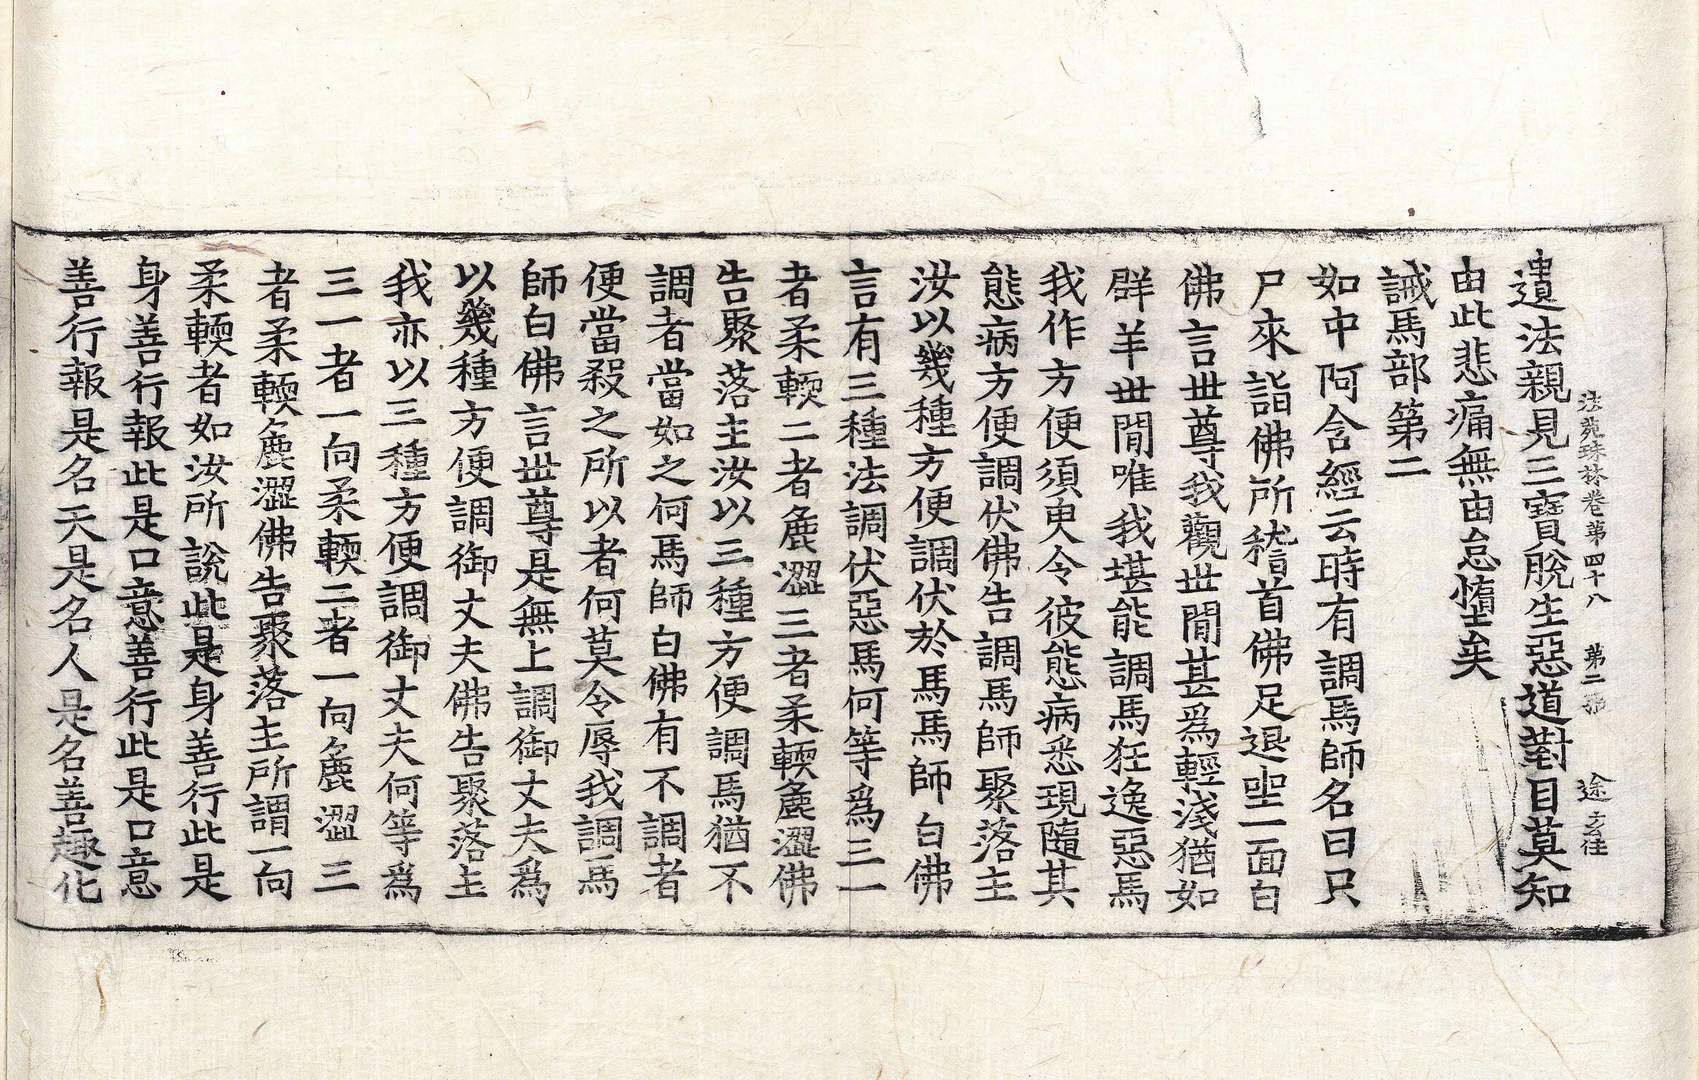 法苑珠林卷第四十八　第二張　途
遺法親見三寶脫生惡道對目莫知
由此悲痛無由怠惰矣
誡馬部第二
如中阿含經云時有調馬師名曰只
尸來詣佛所稽首佛足退坐一面白
佛言世尊我觀世閒甚爲輕淺猶如
群羊世閒唯我堪能調馬狂逸惡馬
我作方便須臾令彼態病悉現隨其
態病方便調伏佛告調馬師聚落主
汝以幾種方便調伏於馬馬師白佛
言有三種法調伏惡馬何等爲三一
者柔輭二者麁澀三者柔輭麁澀佛
告聚落主汝以三種方便調馬猶不
調者當如之何馬師白佛有不調者
便當殺之所以者何莫令辱我調馬
師白佛言世尊是無上調御丈夫爲
以幾種方便調御丈夫佛告聚落主
我亦以三種方便調御丈夫何等爲
三一者一向柔輭二者一向麁澀三
者柔輭麁澀佛告聚落主所謂一向
柔輭者如汝所說此是身善行此是
身善行報此是口意善行此是口意
善行報是名天是名人是名善趣化